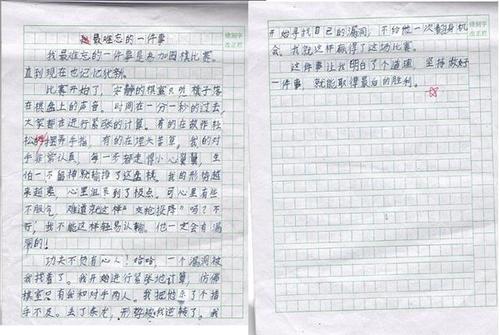 最难忘的一件事
我最难忘的一件事是参加围棋比赛。
直到现在也记忆犹新。
比赛开始了,安静的棋室只听棋子落
在棋盘上的声音。时间在一分一秒的过去,
大家都在进行紧张的计算。有的在故作轻
松的摆弄手指,有的在埋头苦草。我的对
手非常认真,每一步都走得小心翼翼,生
怕一不留神就输掉了这盘棋。我的形势越
来越差,心里沮丧到了极点。可心里有些
不服气,难道就这样"交枪投降"吗?不
行,我不能这样轻易认输。他一定会有漏
洞的!
功夫不负有心人!哈哈,一个漏洞被
我找着了。我开始进行紧张地计算,仿佛
棋室只有我和对手两人。我把他杀了个措
手不及。去了条龙,形势被我逆转了。我
开始寻找自己的漏洞,不给他一次翻身机
会。我就这样赢得了这场比赛。
这件事让我明白了个道理,坚持做好
一件事,就能取得最后的胜利。